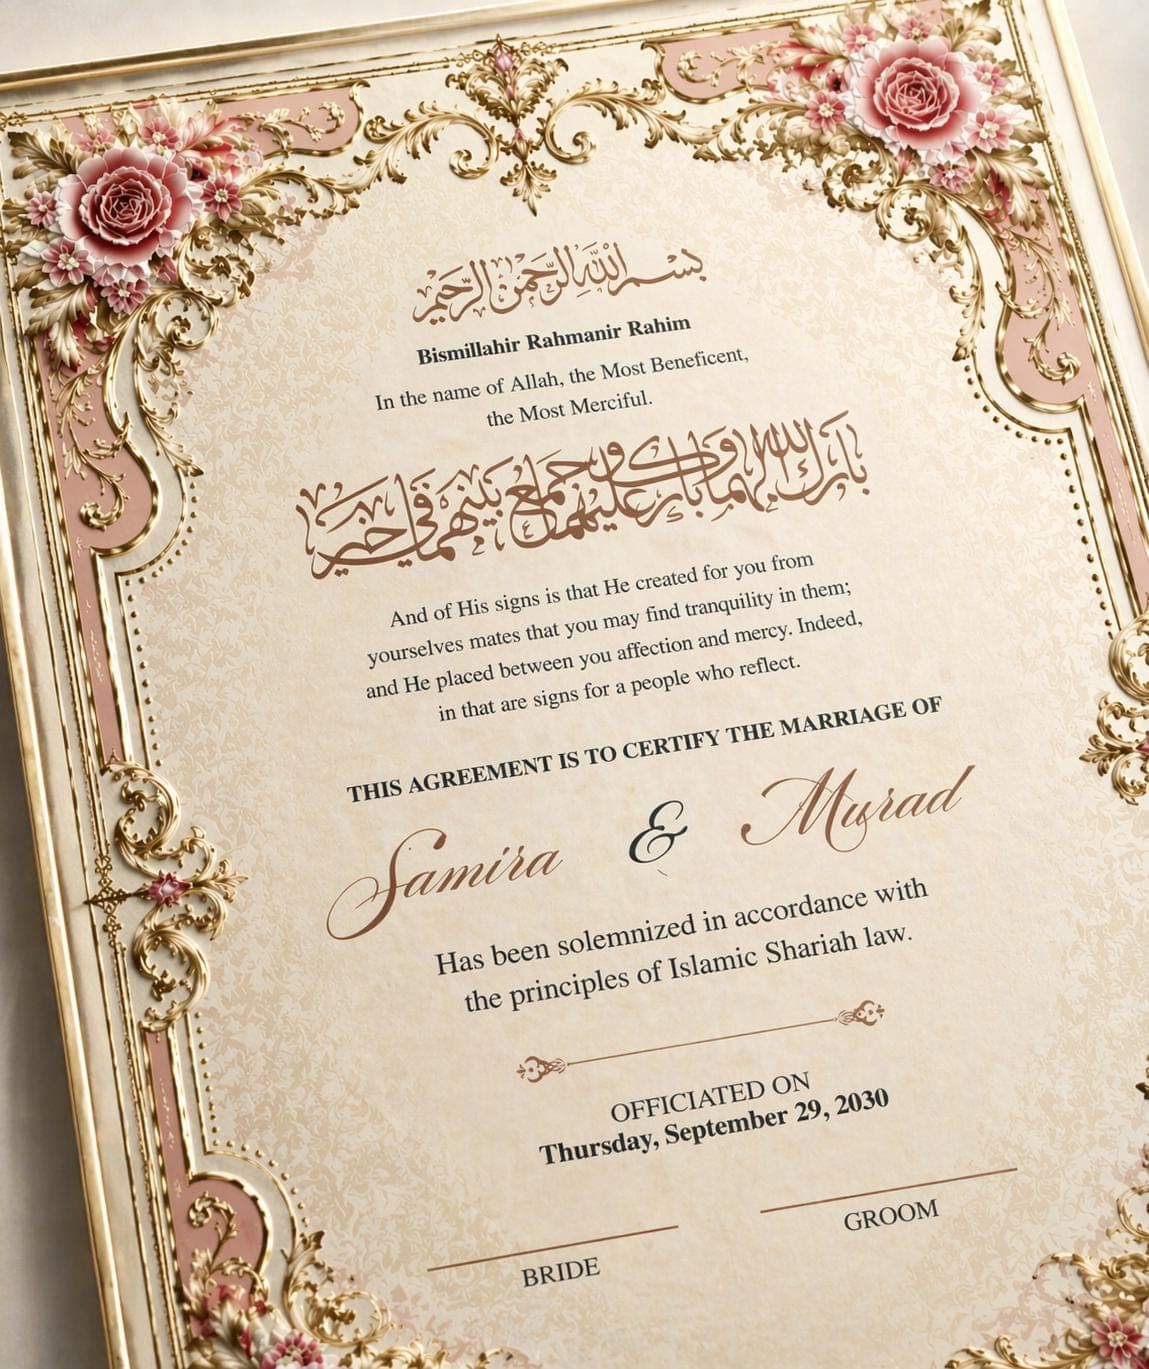 بسم الله الرحمن الرحيم
Bismillahir Rahmanir Rahim
In the name of Allah, the Most Beneficent,
the Most Merciful.
بارك الله لهما وبارك عليهما وجمع بينهما في خير
And of His signs is that He created for you from
yourselves mates that you may find tranquility in them;
and He placed between you affection and mercy. Indeed,
in that are signs for a people who reflect.
THIS AGREEMENT IS TO CERTIFY THE MARRIAGE OF
Samira & Murad
Has been solemnized in accordance with
the principles of Islamic Shariah law.
OFFICIATED ON
Thursday, September 29, 2030
BRIDE
GROOM